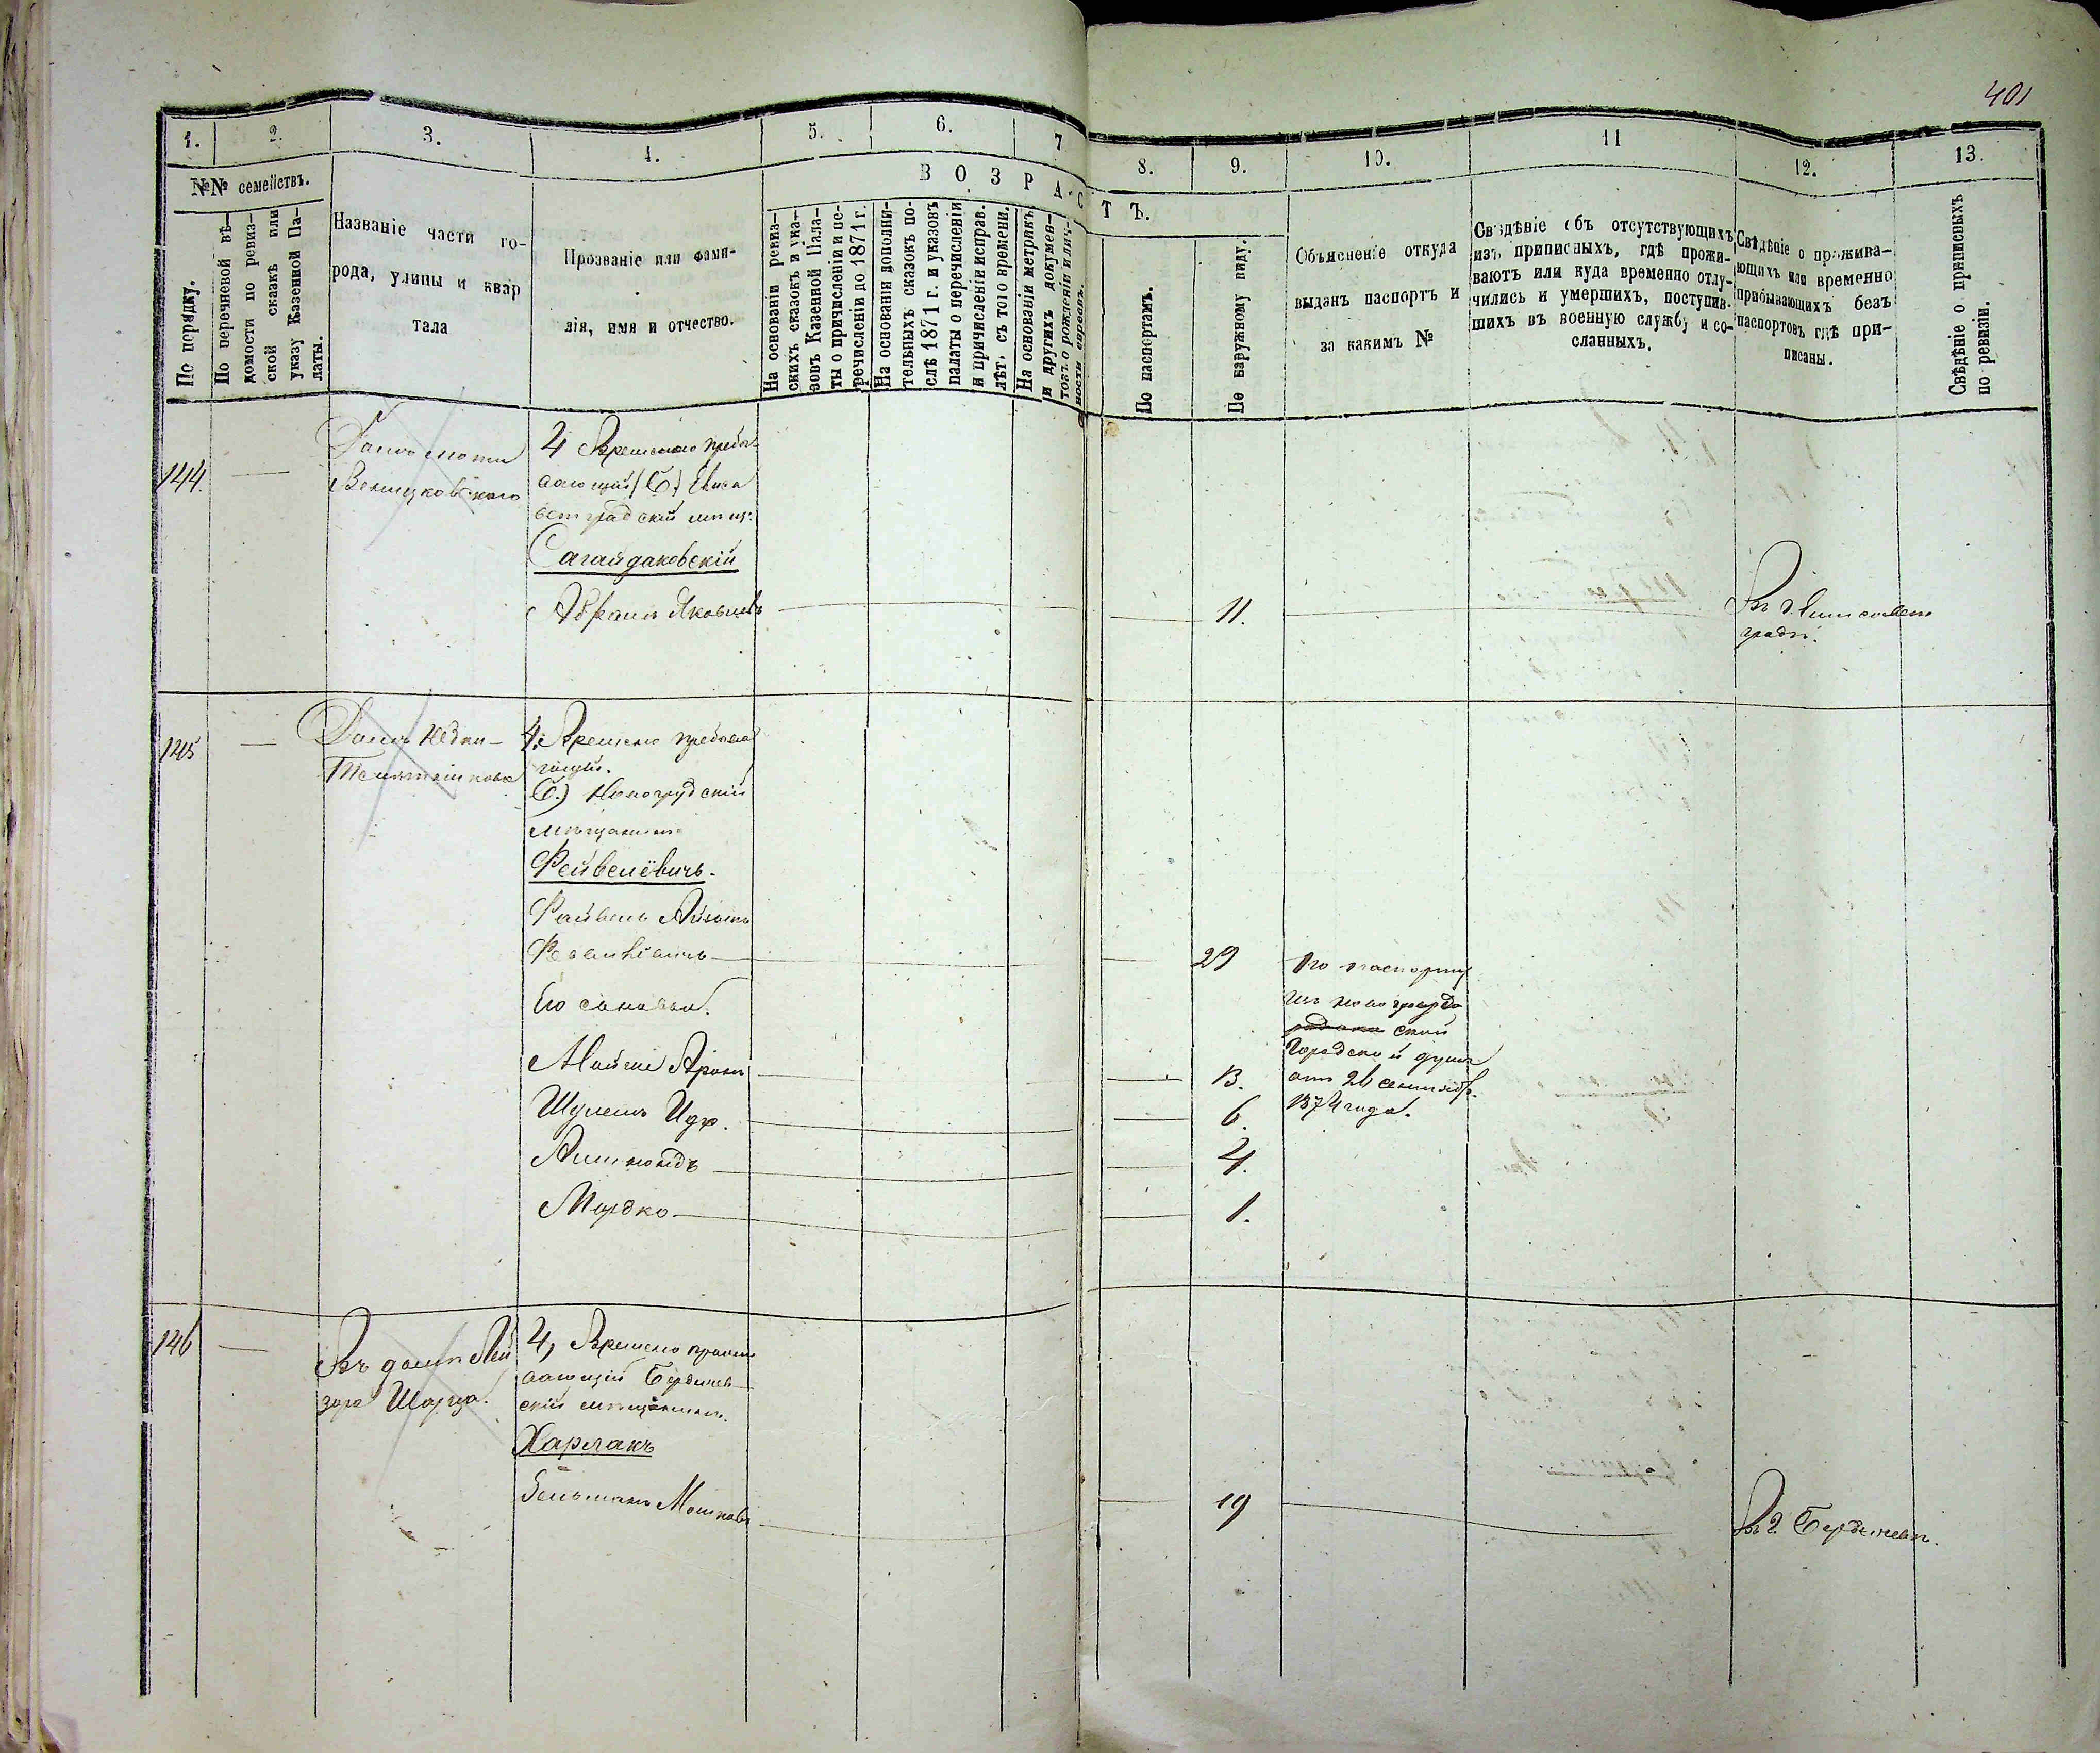 401
1.
2.
3.
4.
5.
6.
7
8.
9.
10.
11
12.
13.
№№ семействъ.
По порядку.
По перечневой вѣ-
домости по ревиз-
ской сказкѣ или
указу Казенной Па-
латы.
Названіе части го-
рода, улицы и квар
тала
Прозваніе или фами-
лія, имя и отчество.
ВОЗРАС
ТЪ.
На основаніи ревиз-
скихъ сказокъ и ука-
зовъ Казенной Пала-
ты о причисленіи и пе-
речисленіи до 1871 г.
На основаніи дополни-
тельныхъ сказокъ по-
слѣ 1871 г. и указовъ
палаты о перечисленіи
и причисленіи исправ.
лѣт. съ того времени.
На основаніи метрикъ
и другихъ докумен-
товъ о рожденіи и лич-
По паспортамъ.
По наружному виду.
Объясненіе откуда
выданъ паспортъ и
за какимъ №
Свѣдѣніе объ отсутствующихъ
изъ приписныхъ, гдѣ прожи-
ваютъ или куда временно отлу-
чились и умершихъ, поступив-
шихъ въ военную службу и со-
сланныхъ.
Свѣдѣніе о прожива-
ющихъ или временно
прибывающихъ безъ
паспортовъ гдѣ при-
писаны.
Свѣдѣніе о приписныхъ
по ревизіи.
144.
Домъ
4 Временно пребы-
вающій (Б) Елиса
ветградскій мѣщ.
Сагайдаковскій
Абрамъ Яковлевъ
11.
Въ Елисавет
градѣ.
145
Домъ
4. Временно пребыва
ющій.
Б.) Новогрудскій
мѣщанинъ
Фейвелёвичъ.
Файвель Айзикъ
29
По паспорту
изъ новогруд
ской
Городской думы
отъ 26 сентябр.
1874 года.
Его сыновья.
Мойше Аронъ
13.
Шулемъ Идр.
6.
4.
Мордко
1.
146
Въ домѣ Лей
зора Шарца.
4, Временно прожи
вающій Бердичев
скій мѣщанинъ.
Харлакъ
Зельманъ Мошковъ
19
Въ г. Бердичевѣ.